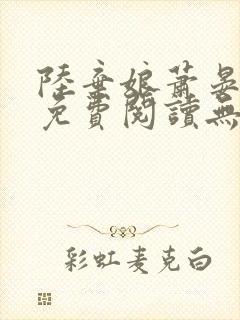 陸棄娘蕭晏
免費閱讀無
彩虹麦克白